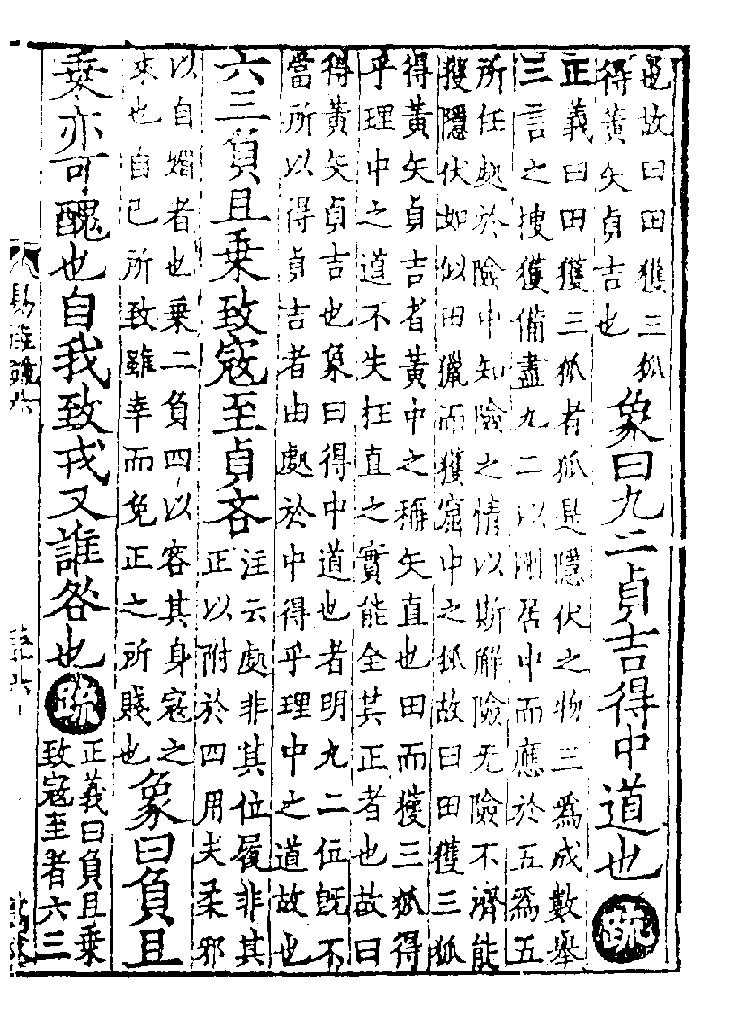 也故曰田獲三狐
得黃矢貞吉也
象曰九二貞吉得中道也 疏
正義曰田獲三狐者狐是隱伏之物三爲成數舉
三言之搜獲備盡九二以剛居中而應於五爲五
所任處於險中知險之情以斯解險无險不濟能
獲隱伏如似田獵而獲窟中之狐故曰田獲三狐
得黃矢貞吉者黃中之稱矢直也田而獲三狐得
乎理中之道不失枉直之實能全其正者也故曰
得黃矢貞吉也象曰得中道也者明九二位旣不
當所以得貞吉者由處於中得乎理中之道故也
六三負且乘致寇至貞吝
注云處非其位履非其
正以附於四用夫柔邪
以自媚者也乘二負四以容其身寇之
來也自己所致雖幸而免正之所賤也
象曰負且
乘亦可醜也自我致戎又誰咎也 疏
正義曰負且乘
致寇至者六三